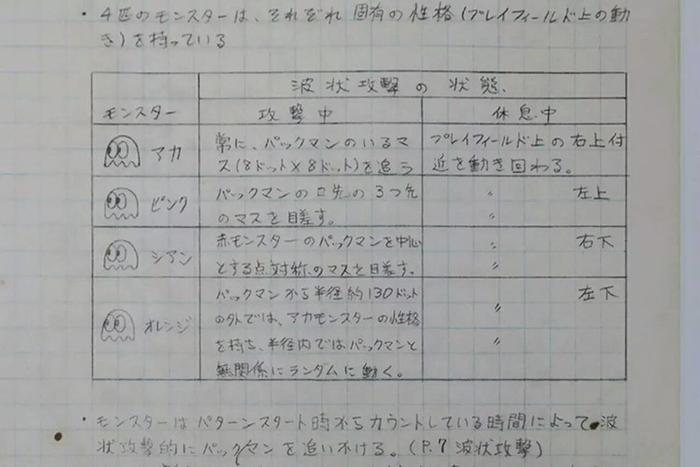 ・4匹のモンスターは、それぞれ固有の性格(プレイフィールド上の動
き)を持っている
波状攻撃の状態.
モンスター 攻撃中 休息中
アカ
常に、パックマンのいるマ
ス(8ドット×8ドット)を追う
プレイフィールド上の右上付
近を動き回わる。
ピンク
パックマンの口先の3つ先
のマスを目差す。
〃 左上
〃
シアン
赤モンスターのパックマンを中心
とする点対称のマスを目差す。
〃 右下
〃
オレンジ
パックマンから半径約130ドット
の外では、アカモンスターの性格
を持ち、半径内ではパックマンと
無関係にランダムに動く。
左下
〃
〃
・モンスターはパターンスタート時からカウントしている時間によって、波
状攻撃的にパックマンを追いかける。(P.7 波状攻撃)